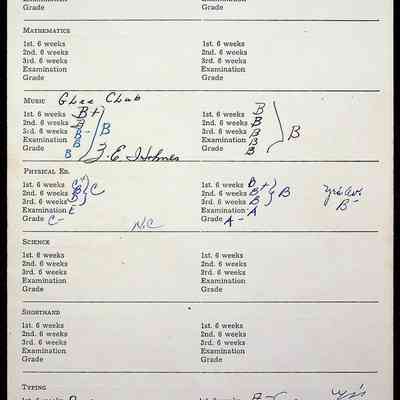 Examination Examination
Grade Grade
MATHEMATICS
1st. 6 weeks 1st. 6 weeks
2nd. 6 weeks 2nd. 6 weeks
3rd. 6 weeks 3rd. 6 weeks
Examination Examination
Grade Grade
MUSIC Glee Club
1st. 6 weeks B+ 1st. 6 weeks B
2nd. 6 weeks B 2nd. 6 weeks B
3rd. 6 weeks B- B 3rd. 6 weeks B B
Examination B Examination B
Grade B Grade B
F. E. Holmes
PHYSICAL ED.
1st. 6 weeks C+ 1st. 6 weeks B
2nd. 6 weeks B C 2nd. 6 weeks B+ B
3rd. 6 weeks D 3rd. 6 weeks B B-
Examination E Examination A
Grade C- NC Grade A-
SCIENCE
1st. 6 weeks 1st. 6 weeks
2nd. 6 weeks 2nd. 6 weeks
3rd. 6 weeks 3rd. 6 weeks
Examination Examination
Grade Grade
SHORTHAND
1st. 6 weeks 1st. 6 weeks
2nd. 6 weeks 2nd. 6 weeks
3rd. 6 weeks 3rd. 6 weeks
Examination Examination
Grade Grade
TYPING
1st. 6 weeks 1st. 6 weeks